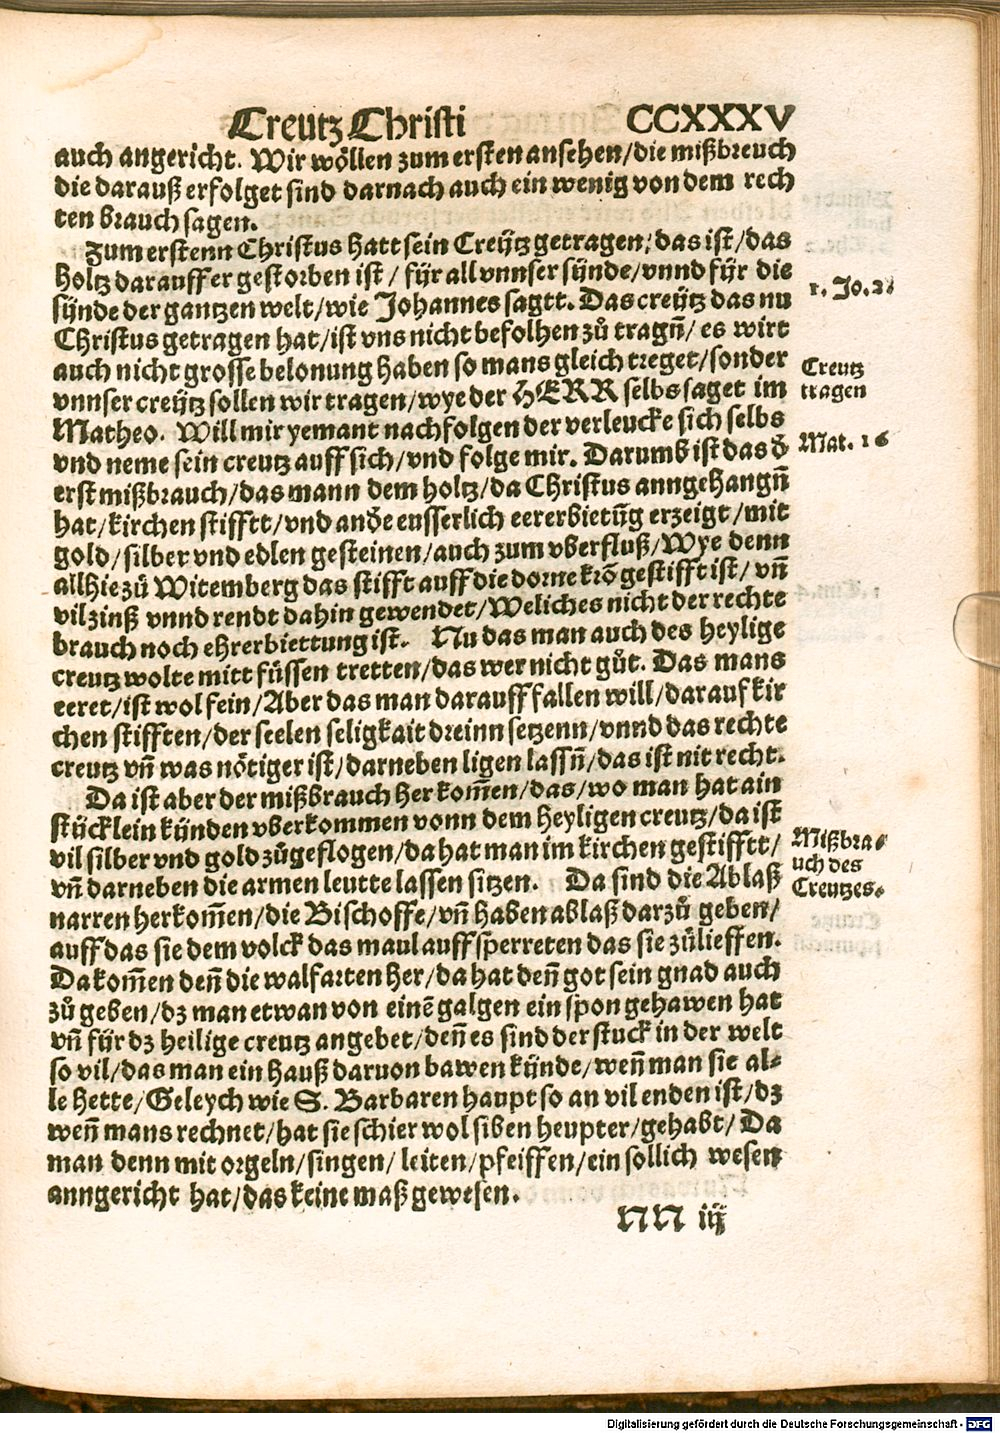 Creutz Christi CCXXXV
auch angericht. Wir wöllen zum ersten ansehen/die mißbreuch
die darauß erfolget sind darnach auch ein wenig von dem rech
ten brauch sagen.
Zum erstenn Christus hatt sein Creütz getragen/das ist/das
holtz darauff er gestorben ist/ für all vnnser sünde/vnnd für die
sünde der gantzen welt/wie Johannes sagtt. Das creütz das nu
Christus getragen hat/ist vns nicht befolhen zů tragñ/ es wirt
auch nicht grosse belonung haben so mans gleich treget/sonder
vnnser creütz sollen wir tragen/wye der HERR selbs saget im
Matheo. Will mir yemant nachfolgen der verleucke sich selbs
vnd neme sein creutz auff sich/vnd folge mir. Darumb ist das d̄
erst mißbrauch/das mann dem holtz/da Christus anngehangñ
hat/kirchen stifftt/vnd and̄e eusserlich eererbietũg erzeigt/mit
gold/silber vnd edlen gesteinen/auch zum vberfluß/Wye denn
allhie zů Witemberg das stifft auff die dorne krõ gestifft ist/ vñ
vil zinß vnnd rendt dahin gewendet/Weliches nicht der rechte
brauch noch ehrerbiettung ist. Nu das man auch des heylige
creutz wolte mitt füssen tretten/das wer nicht gůt. Das mans
eeret/ist wol fein/Aber das man darauff fallen will/darauf kir
chen stifften/der seelen seligkait dreinn setzenn/vnnd das rechte
creutz vñ was nötiger ist/darneben ligen lassñ/das ist nit recht.
Da ist aber der mißbrauch her kom̃en/das/wo man hat ain
stücklein künden vberkommen vonn dem heyligen creutz/da ist
vil silber vnd gold zůgeflogen/da hat man im kirchen gestifftt/
vñ darneben die armen leutte lassen sitzen. Da sind die Ablaß
narren herkom̃en/die Bischoffe/vñ haben ablaß darzů geben/
auff das sie dem volck das maul auffsperreten das sie zůlieffen.
Da kom̃en den̄ die walfarten her/da hat den̄ got sein gnad auch
zů geben/dz man etwan von einẽ galgen ein spon gehawen hat
vñ für dz heilige creutz angebet/den̄ es sind der stuck in der welt
so vil/das man ein hauß daruon bawen künde/wen̄ man sie al⸗
le hette/Geleych wie S. Barbaren haupt so an vil enden ist/dz
wen̄ mans rechnet/hat sie schier wol siben heupter/gehabt/ Da
man denn mit orgeln/singen/ leiten/pfeiffen/ein sollich wesen
anngericht hat/das keine maß gewesen.
NN iij
1. Jo. 2.
Creutz
tragen
Mat. 16
Mißbra⸗
uch des
Creutzes.
Digitalisierung gefördert durch die Deutsche Forschungsgemeinschaft - DFG